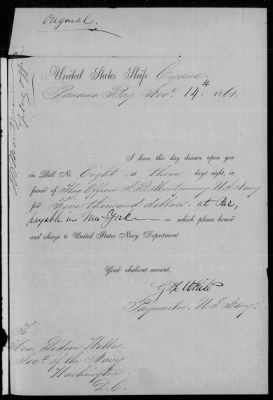 Original.
United States Ship Cyane
Panama Bay, Nov. 14th 1861.
I have this day drawn upon you
in Bill No. Eight, at three days' sight, in
favor of Flag Officer J. B. Montgomery U.S. Navy
for Five thousand dollars, at Par,
payable in New York — which please honor
and charge to United States Navy Department.
Your obedient servant,
Paymaster U.S. Navy.
To
Hon. Gideon Welles
Sec. of the Navy
Washington
D.C.